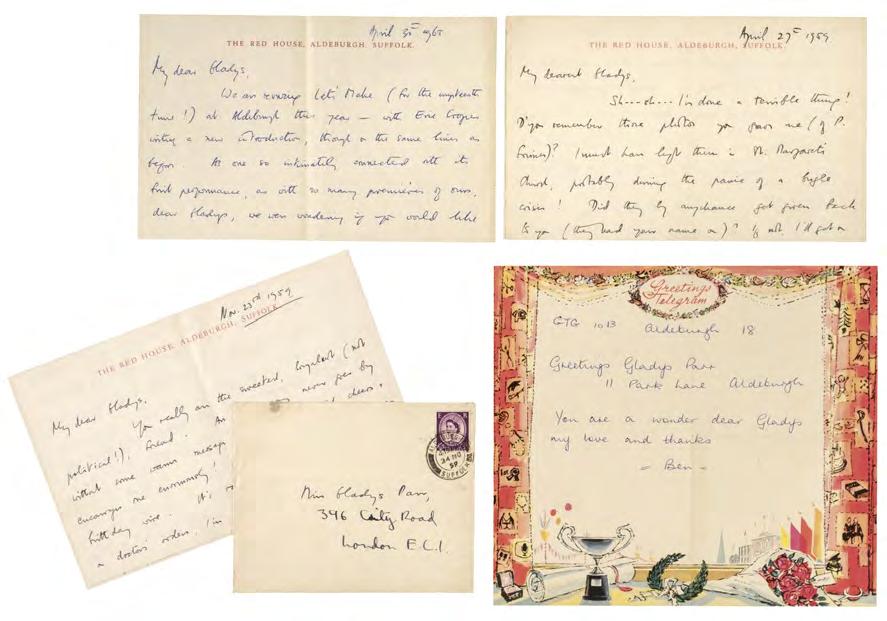 April 5th 1965
THE RED HOUSE, ALDEBURGH, SUFFOLK.
My dear Gladys,
We are reviving Let's Make (for the umpteenth
time!) at Aldeburgh this year — with Eric Crozier
writing a new introduction, though on the same lines as
before. As one so intimately connected with its
first performance, as with so many premières of ours,
dear Gladys, we were wondering if you would like
April 27th 1959
THE RED HOUSE, ALDEBURGH, SUFFOLK.
My dearest Gladys,
Sh---sh--- I've done a terrible thing!
D'you remember those photos you gave me (of P.
Grimes)? I must have left them in St. Margaret's
church, probably during the panic of a bugle
crisis! Did they by any chance get given back
to you (they had your name on)? If not I'll get a
Nov. 23rd 1959
THE RED HOUSE, ALDEBURGH, SUFFOLK.
My dear Gladys,
You really are the sweetest, loyalest (not
political!), friend. never goes by
without some warm message cheers &
encourages me enormously!
birthday wire. It's
a doctor's orders. I'm in
24 NO
59
SUFFOLK
Miss Gladys Parr,
396 City Road
London E.C.1.
Greetings
Telegram
GTG 10 13 Aldeburgh 18
Greetings Gladys Parr
11 Park Lane Aldeburgh
You are a wonder dear Gladys
my love and thanks
= Ben =